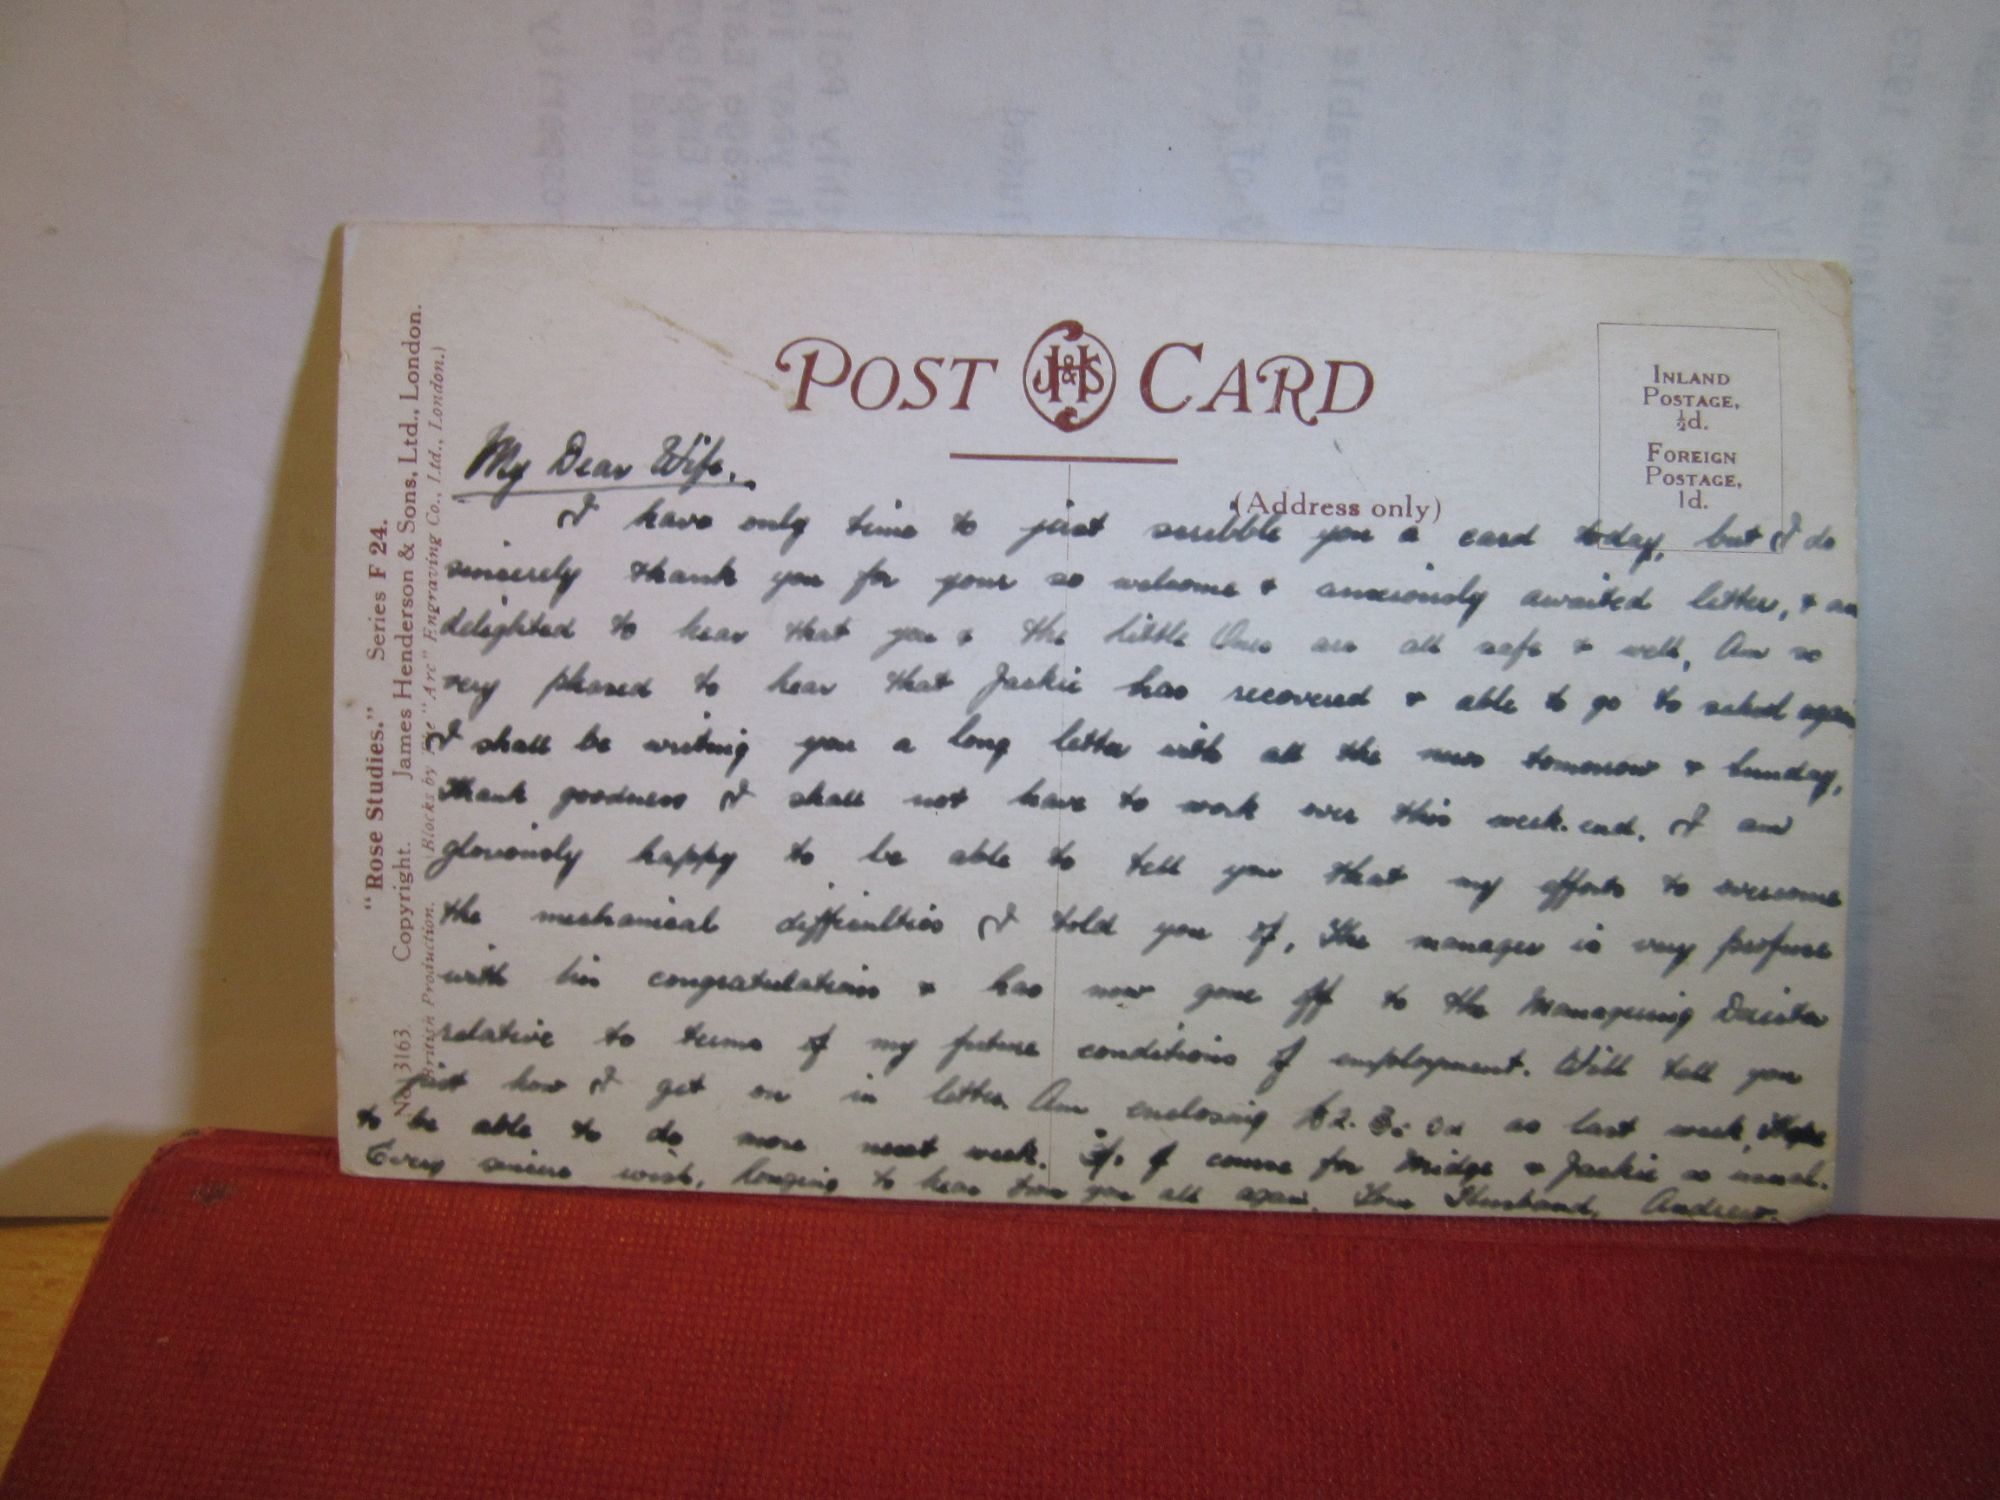 POST J.H&S CARD
INLAND
POSTAGE,
½d.
FOREIGN
POSTAGE,
1d.
(Address only)
"Rose Studies." Series F 24.
Copyright. James Henderson & Sons, Ltd., London.
No. 3163. British Production. Blocks by The "Arc" Engraving Co., Ltd., London.)
My Dear Wife.
I have only time to just scribble you a card today, but I do
sincerely thank you for your so welcome & anxiously awaited letter, & am
delighted to hear that you & the little Ones are all safe & well, Am so
very pleased to hear that Jackie has recovered & able to go to school again
I shall be writing you a long letter with all the news tomorrow & Sunday,
thank goodness I shall not have to work over this week-end. I am
gloriously happy to be able to tell you that my efforts to overcome
the mechanical difficulties I told you of, The manager is very profuse
with his congratulations & has now gone off to the Managering Director
relative to terms of my future conditions of employment. Will tell you
just how I get on in letter. Am enclosing £2.3.0d as last week, Hope
to be able to do more next week. of course for Midge & Jackie as usual.
Every sincere wish, longing to hear from you all again. Your Husband, Andrew.